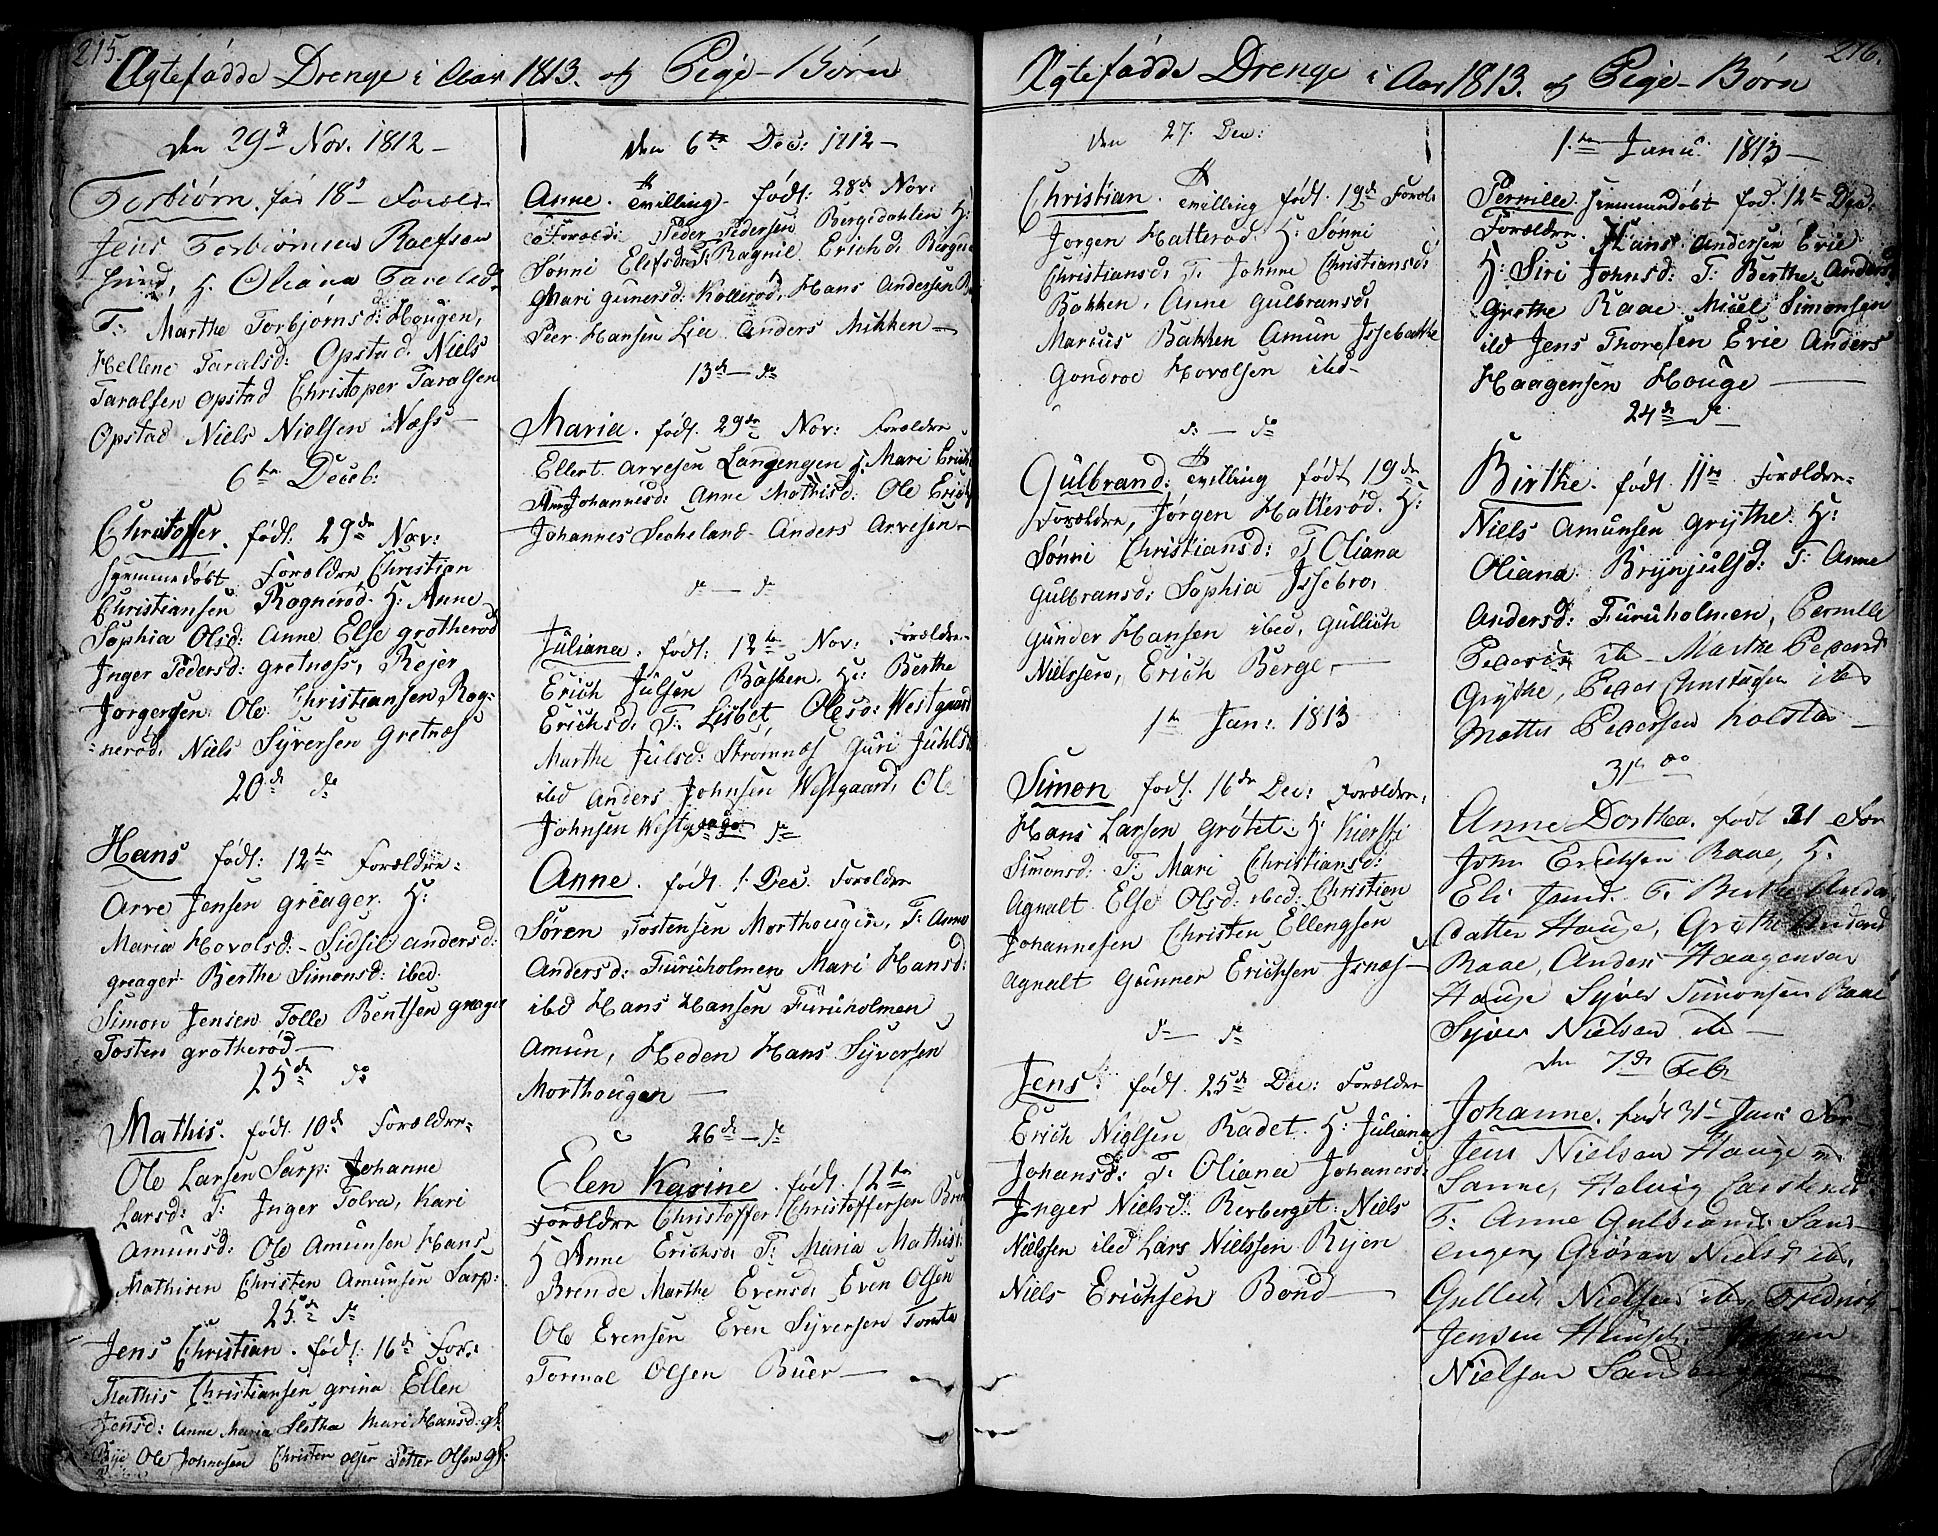 215.
Ægtefødde Drenge i Aar 1813. og Pige-Børn
den 29d Nov. 1812 -
Torbiørn. fød 18d Foreld-
Jens Torbiørnsen Raefsen
H. Oliana Taralsd
T: Marthe Torbjørnsd: Hougen,
Hellene Taralsd: Opstad. Niels
Taralsen Opstad Christoper Taralsen
Opstad Niels Nielsen Næss -
6te Deceb:
Christoffer. født: 29de Nov:
hjemmedøbt Forældre Christian
Christiansen Rognerød. H: Anne
Sophia Olsd: Anne Else grotherød
Inger Pedersd: gretnæss, Rejer
Jørgensen Ole Christiansen Rog-
=nerød. Niels Syversen Gretnæs
20de do
Hans født: 12te Forældre:
Arve Jensen greager. H:
Maria Hovolsd: - Sidsil andersd:
greager Berthe Simonsd: ibed.
Simon Jensen Tolle Bentsen greager
Tosten grotherød -
25de do
Mathis. født: 10d Forældre=
Ole Larsen Sarp: Johanne
Larsd: T: Inger Tolva, Kari
Amunsd: Ole Amunsen Hans
Mathisen Christen Amunsen Sarp:
25de do
Jens Christian. født: 16d For:
Mathis Christiansen grina Ellen
Jensd: Anne Maria Slotha Mari Hansd: gr:
Ole Johnesen Christen olsen Petter Olsen gr:
den 6te Dec: 1812 -
Anne. Tvilling - født: 28de Nov:
Foreld: Peder Pedersen Bergsdahlen H:
Sønni Elefsd: T: Ragnil Erichd: Berges
Mari gunersd: Kollerød, Hans Andersen
Peer Hansen Lie Anders Mikken -
13de - do
Maria. født. 29de Nov: Forældre
Ellert Arvesen Langengen H: Mari Erich
Johannisd: Anne Mathisd: Ole Erich
Johannes Secheland Anders Arvesen -
do - do
Juliana. født: 12te Nov: Forældre
Erich Julsen Basken. H: Berthe
Erichsd: T: Lisbet Olesd: Westgaard
Marthe Julsd: Strømnæs Guri Juhlsd
ibd Anders Johnsen Westgaard, Ole
Johnsen Westg do
Anne. født. 1. Dec. Foreldre
Søren Tostensen Morthougen, T: Anne
Andersd: Furuholmen Mari Hansd:
ibd Hans Hansen Furuholmen
Amun, Heden Hans Syversen
Morthougen -
26de - do
Elen Karine. født. 12te
Forældre Christoffer Christoffersen Bren
H Anne Erichsd T: Maria Mathisd:
Brende Marthe Evensd. Even Olsen
Ole Evensen Even Syversen Tomta
Tormal Olsen Buer -
216.
Ægtefødde Drenge i Aar 1813. og Pige-Børn
den 27. Dec:
Christian. Tvilling født. 19de Foreld:
Jørgen Hatterød. H: Sønni
Christiansd: T: Johnne Christiansd:
Bakken, Anne Gulbransd:
Marcus Bakken Amun Issebakke
Gondroe Hovolsen ibd -
do - do
Gulbrand: Tvilling født 19de
Foreldre, Jørgen Hatterød. H:
Sønni Christiansd: T Oliana
Gulbransd: Sophia Issebro.
Gunder Hansen ibed, Gullich
Nielssen, Erich Berge. -
1te Jan: 1813
Simon født. 16de Dec: Forældre:
Hans Larsen Grøtet. H: Kiersti
Simonsd: T: Mari Christiansd:
Agnalt Else Olsd: ibed: Christian
Johannesen Christen Ellengsen
Agnalt Gunner Erichsen Isnæs -
do - do
Jens. født. 25de Dec: Forældre
Erich Nielsen Radet. H: Juliana
Johansd: T: Oliana Johanesd:
Inger Nielsd: Rerberget: Niels
Nielssen ibed Lars Nielssen Ryen
Niels Erichsen Bond -
1.te Janu: 1813 -
Pernille. hjemmendøbt fød. 12te Dec:
Forældre. Hans Andersen Evie
H: Siri Johnsd: T: Berthe Andersd
Grethe Raae Micel Simonsen
ibd Jens Thoresen Evie Anders
Haagensen Houge -
24de do
Birthe. født. 11te Forældre-
Niels Amunsen Grythe. H:
Oliana. Brynjulsd: T: Anne
Andersd: Furuholmen, Pernille
ib - Marthe Pedersd
Grythe, Peder Christiansen ibd
Mattis Pedersen Kolstad -
31te do
Anne Dorthea. født 21 For
John Ericksen Raae, H.
Eli Jensd. T. Berthe Anders
datter Hauge, Grethe Andersd
Raae, Anders Haagensen
Hauge Syver Simonsen Raae
Syver Nielsen ib -
den 7de Feb
Johanne. født 31te Jan: For-
Jens Nielsen Hauge
Sanne, Helvig Carstensd
T: Anne Gulbrands. Sand-
engen, Giøran Nielsd ib.
Gullich Nielsen ib, Fredrich
Jensen
Nielsen Sandengen -